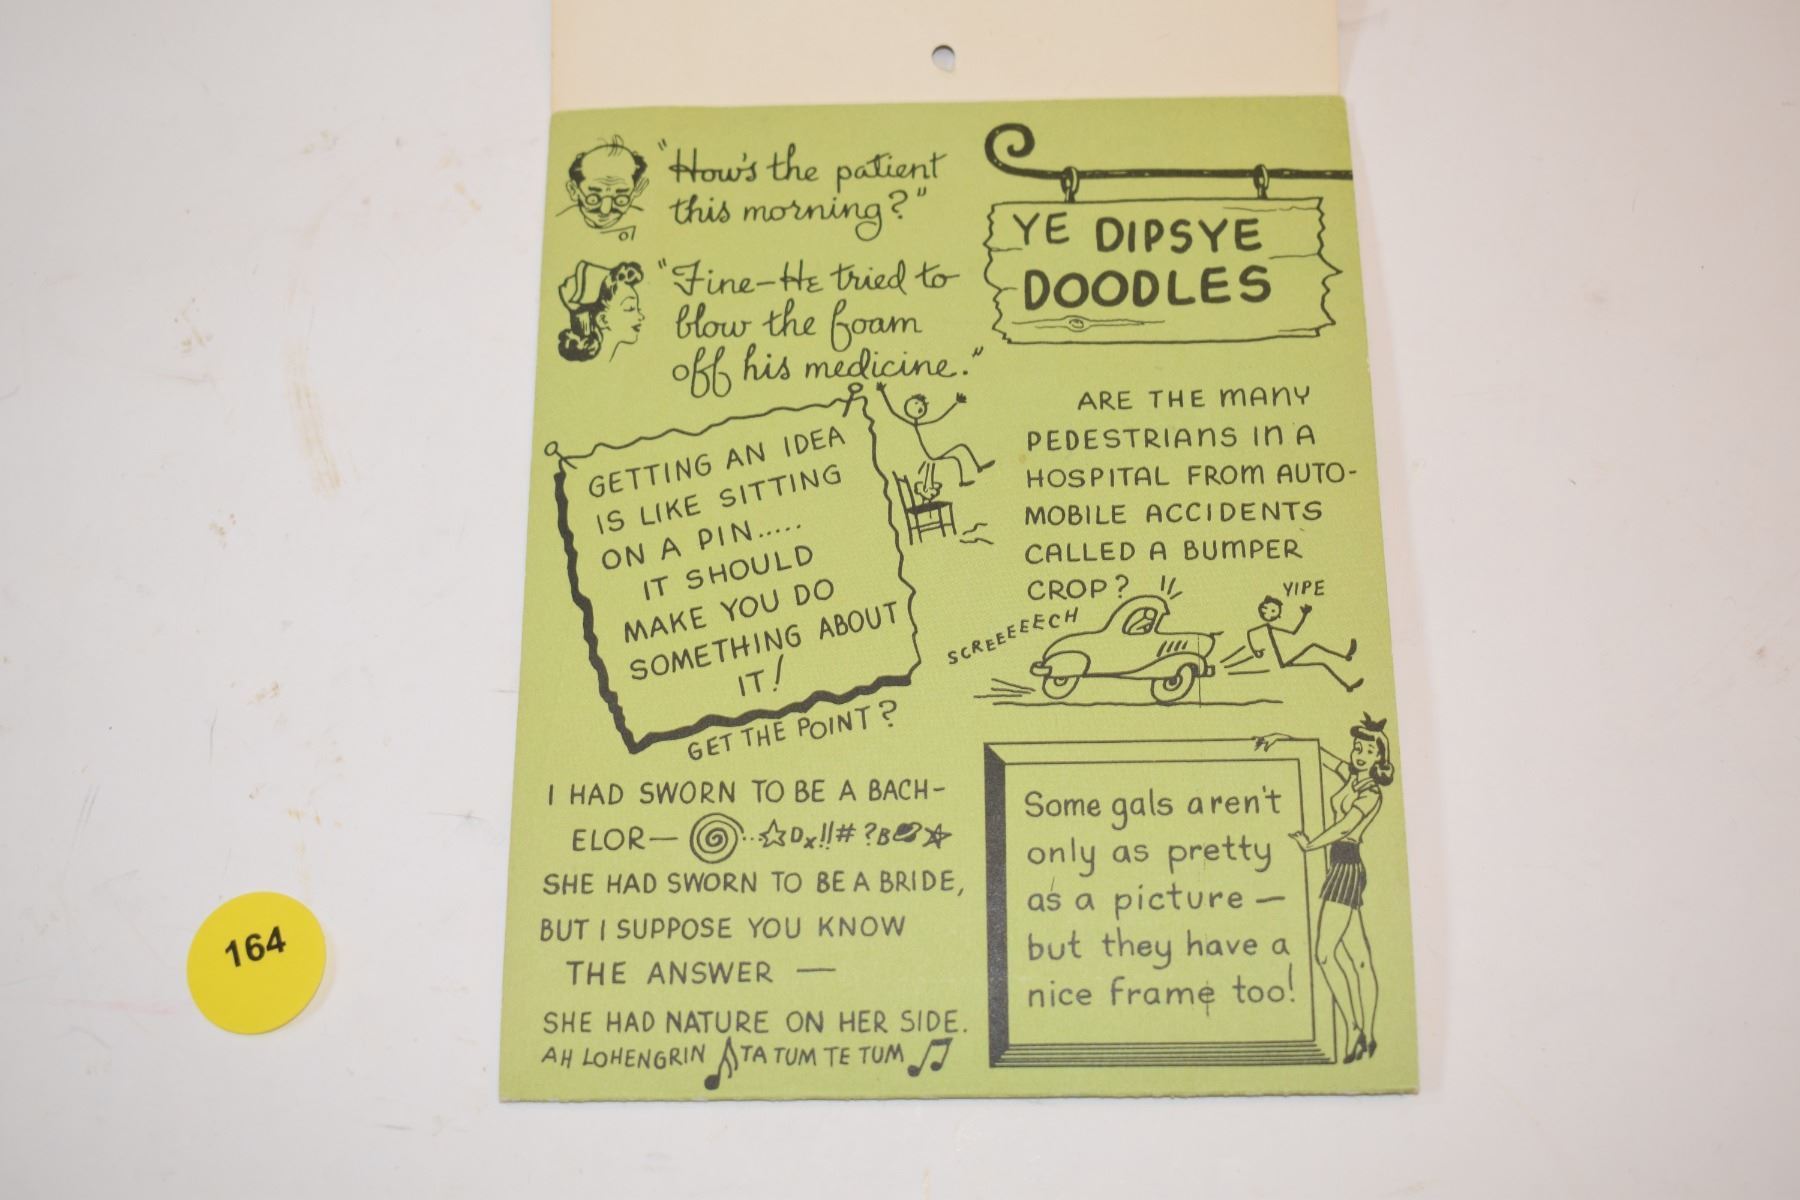 "How's the patient
this morning?"
"Fine—He tried to
blow the foam
off his medicine."
YE DIPSYE
DOODLES
GETTING AN IDEA
IS LIKE SITTING
ON A PIN.....
IT SHOULD
MAKE YOU DO
SOMETHING ABOUT
IT!
GET THE POINT?
ARE THE MANY
PEDESTRIANS IN A
HOSPITAL FROM AUTO-
MOBILE ACCIDENTS
CALLED A BUMPER
CROP?
YIPE
SCREEEEECH
I HAD SWORN TO BE A BACH-
ELOR—
SHE HAD SWORN TO BE A BRIDE,
BUT I SUPPOSE YOU KNOW
THE ANSWER —
SHE HAD NATURE ON HER SIDE.
AH LOHENGRIN TA TUM TE TUM
Some gals aren't
only as pretty
as a picture —
but they have a
nice frame too!
164